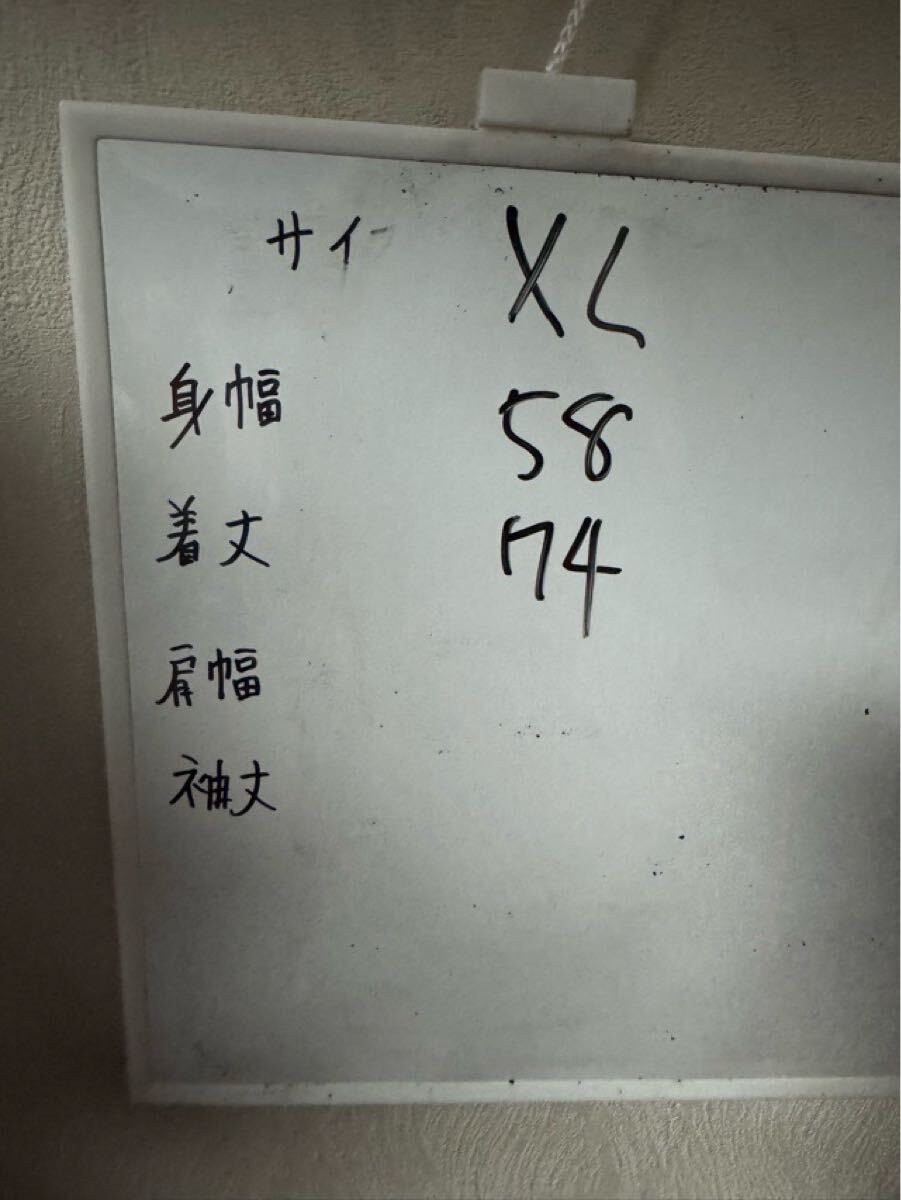 サイ XL
身幅 58
着丈 74
肩幅
袖丈